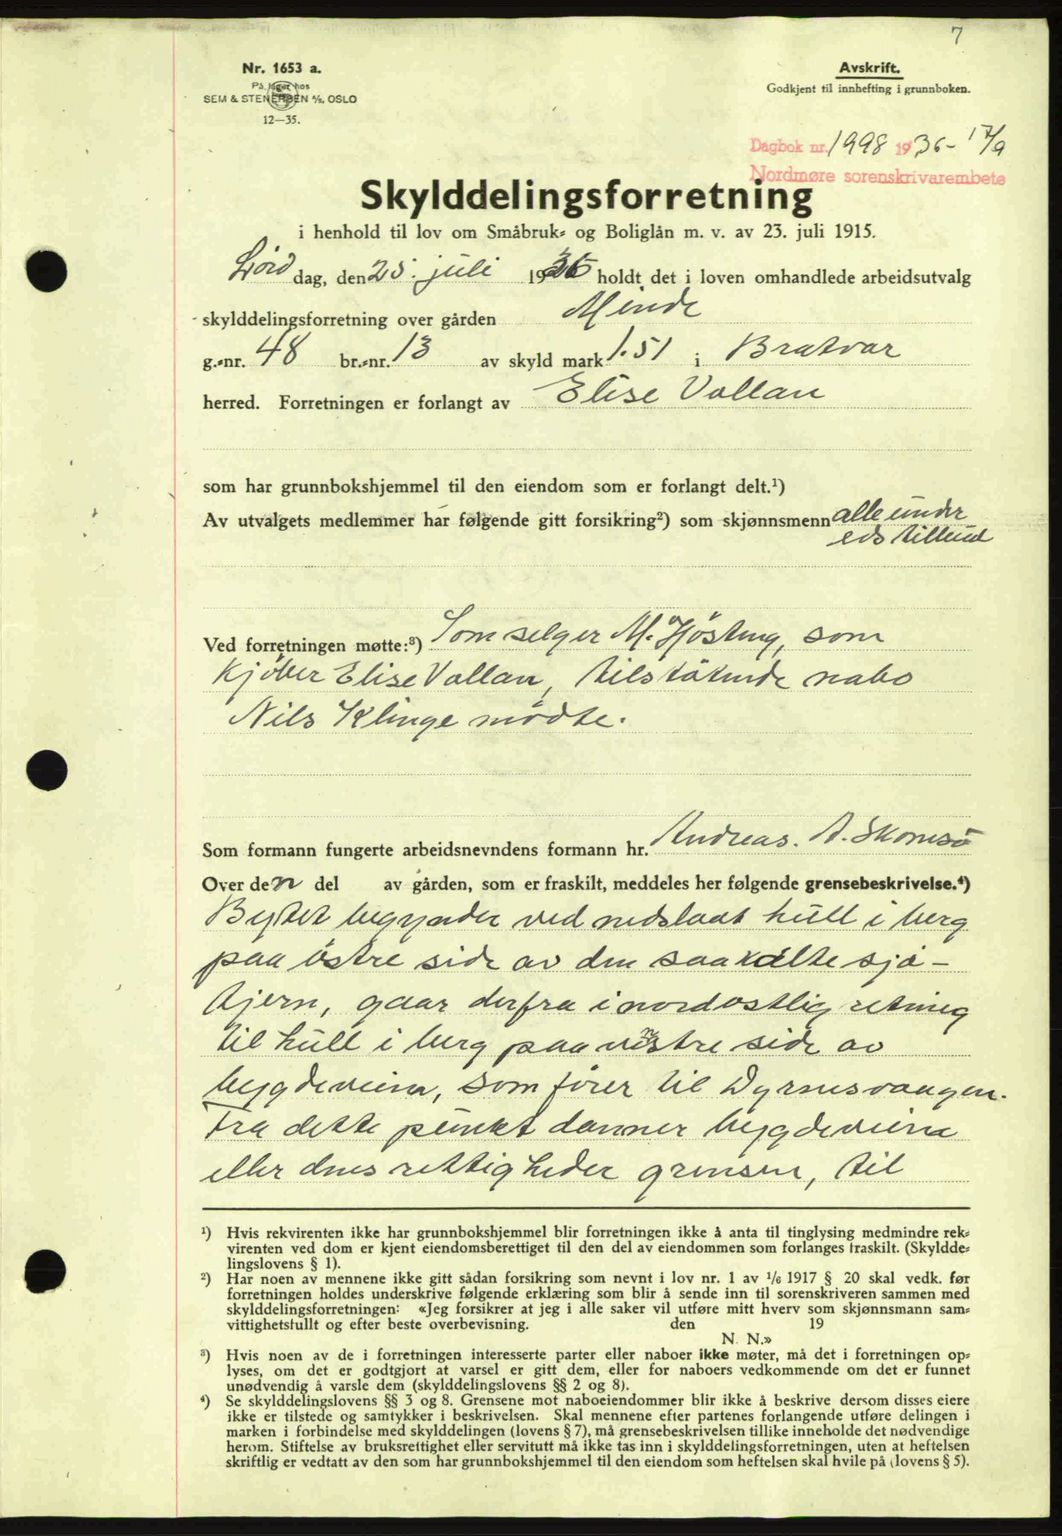 7
Nr. 1653 a.
På lager hos
SEM & STENERSEN A/S, OSLO
12—35.
Avskrift.
Godkjent til innhefting i grunnboken.
Dagbok nr. 1998 1936 - 17/9
Nordmøre sorenskrivarembete
Skylddelingsforretning
i henhold til lov om Småbruk- og Boliglån m. v. av 23. juli 1915.
Lördag, den 25. juli 1936 holdt det i loven omhandlede arbeidsutvalg
skylddelingsforretning over gården Minde
g.-nr. 48 br.-nr. 13 av skyld mark 1.51 i Bratvær
herred. Forretningen er forlangt av Elise Vollan
som har grunnbokshjemmel til den eiendom som er forlangt delt.¹)
Av utvalgets medlemmer har følgende gitt forsikring²) som skjønnsmenn alle under
eds tilbud
Ved forretningen møtte:³) Som selger M. Hösteng, som
kjöber Elise Vollan, tilstötende nabo
Nils Klinge mödte.
Som formann fungerte arbeidsnevndens formann hr. Andreas. A. Skomsö
Over den del av gården, som er fraskilt, meddeles her følgende grensebeskrivelse.⁴)
Bytet begynder ved nedslaat hull i berg
paa östre side av den saakalte sjö-
tjern, gaar derfra i nordostlig retning
til hull i berg paa vestre side av
bygdeveien, som förer til Dyrnesvaagen.
Fra dette punkt danner bygdeveiene
eller dens rettigheder grensen, til
¹) Hvis rekvirenten ikke har grunnbokshjemmel blir forretningen ikke å anta til tinglysing medmindre rek-
virenten ved dom er kjent eiendomsberettiget til den del av eiendommen som forlanges fraskilt. (Skyldde-
lingslovens § 1).
²) Har noen av mennene ikke gitt sådan forsikring som nevnt i lov nr. 1 av 1/6 1917 § 20 skal vedk. før
forretningen holdes underskrive følgende erklæring som blir å sende inn til sorenskriveren sammen med
skylddelingsforretningen: «Jeg forsikrer at jeg i alle saker vil utføre mitt hverv som skjønnsmann sam-
vittighetsfullt og efter beste overbevisning. den 19
N. N.»
³) Hvis noen av de i forretningen interesserte parter eller naboer ikke møter, må det i forretningen op-
lyses, om det er godtgjort at varsel er gitt dem, eller for naboers vedkommende om det er funnet
unødvendig å varsle dem (skylddelingslovens §§ 2 og 8).
⁴) Se skylddelingslovens §§ 3 og 8. Grensene mot naboeiendommer blir ikke å beskrive dersom disses eiere
ikke er tilstede og samtykker i beskrivelsen. Skal mennene efter partenes forlangende utføre delingen i
marken i forbindelse med skylddelingen (lovens § 7), må grensebeskrivelsen tillike inneholde det nødvendige
herom. Stiftelse av bruksrettighet eller servitutt må ikke tas inn i skylddelingsforretningen, uten at heftelsen
skriftlig er vedtatt av den som har grunnbokshjemmel til den eiendom som heftelsen skal hvile på (lovens § 5).